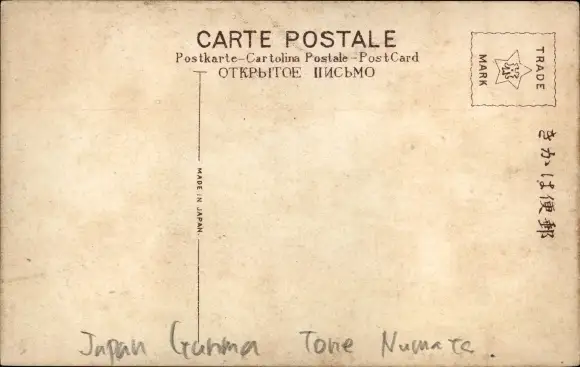 CARTE POSTALE
Postkarte-Cartolina Postale-PostCard
ОТКРЫТОЕ ПИСЬМО
TRADE
MARK
きかは便郵
MADE IN JAPAN.
Japan Gunma Tone Numata